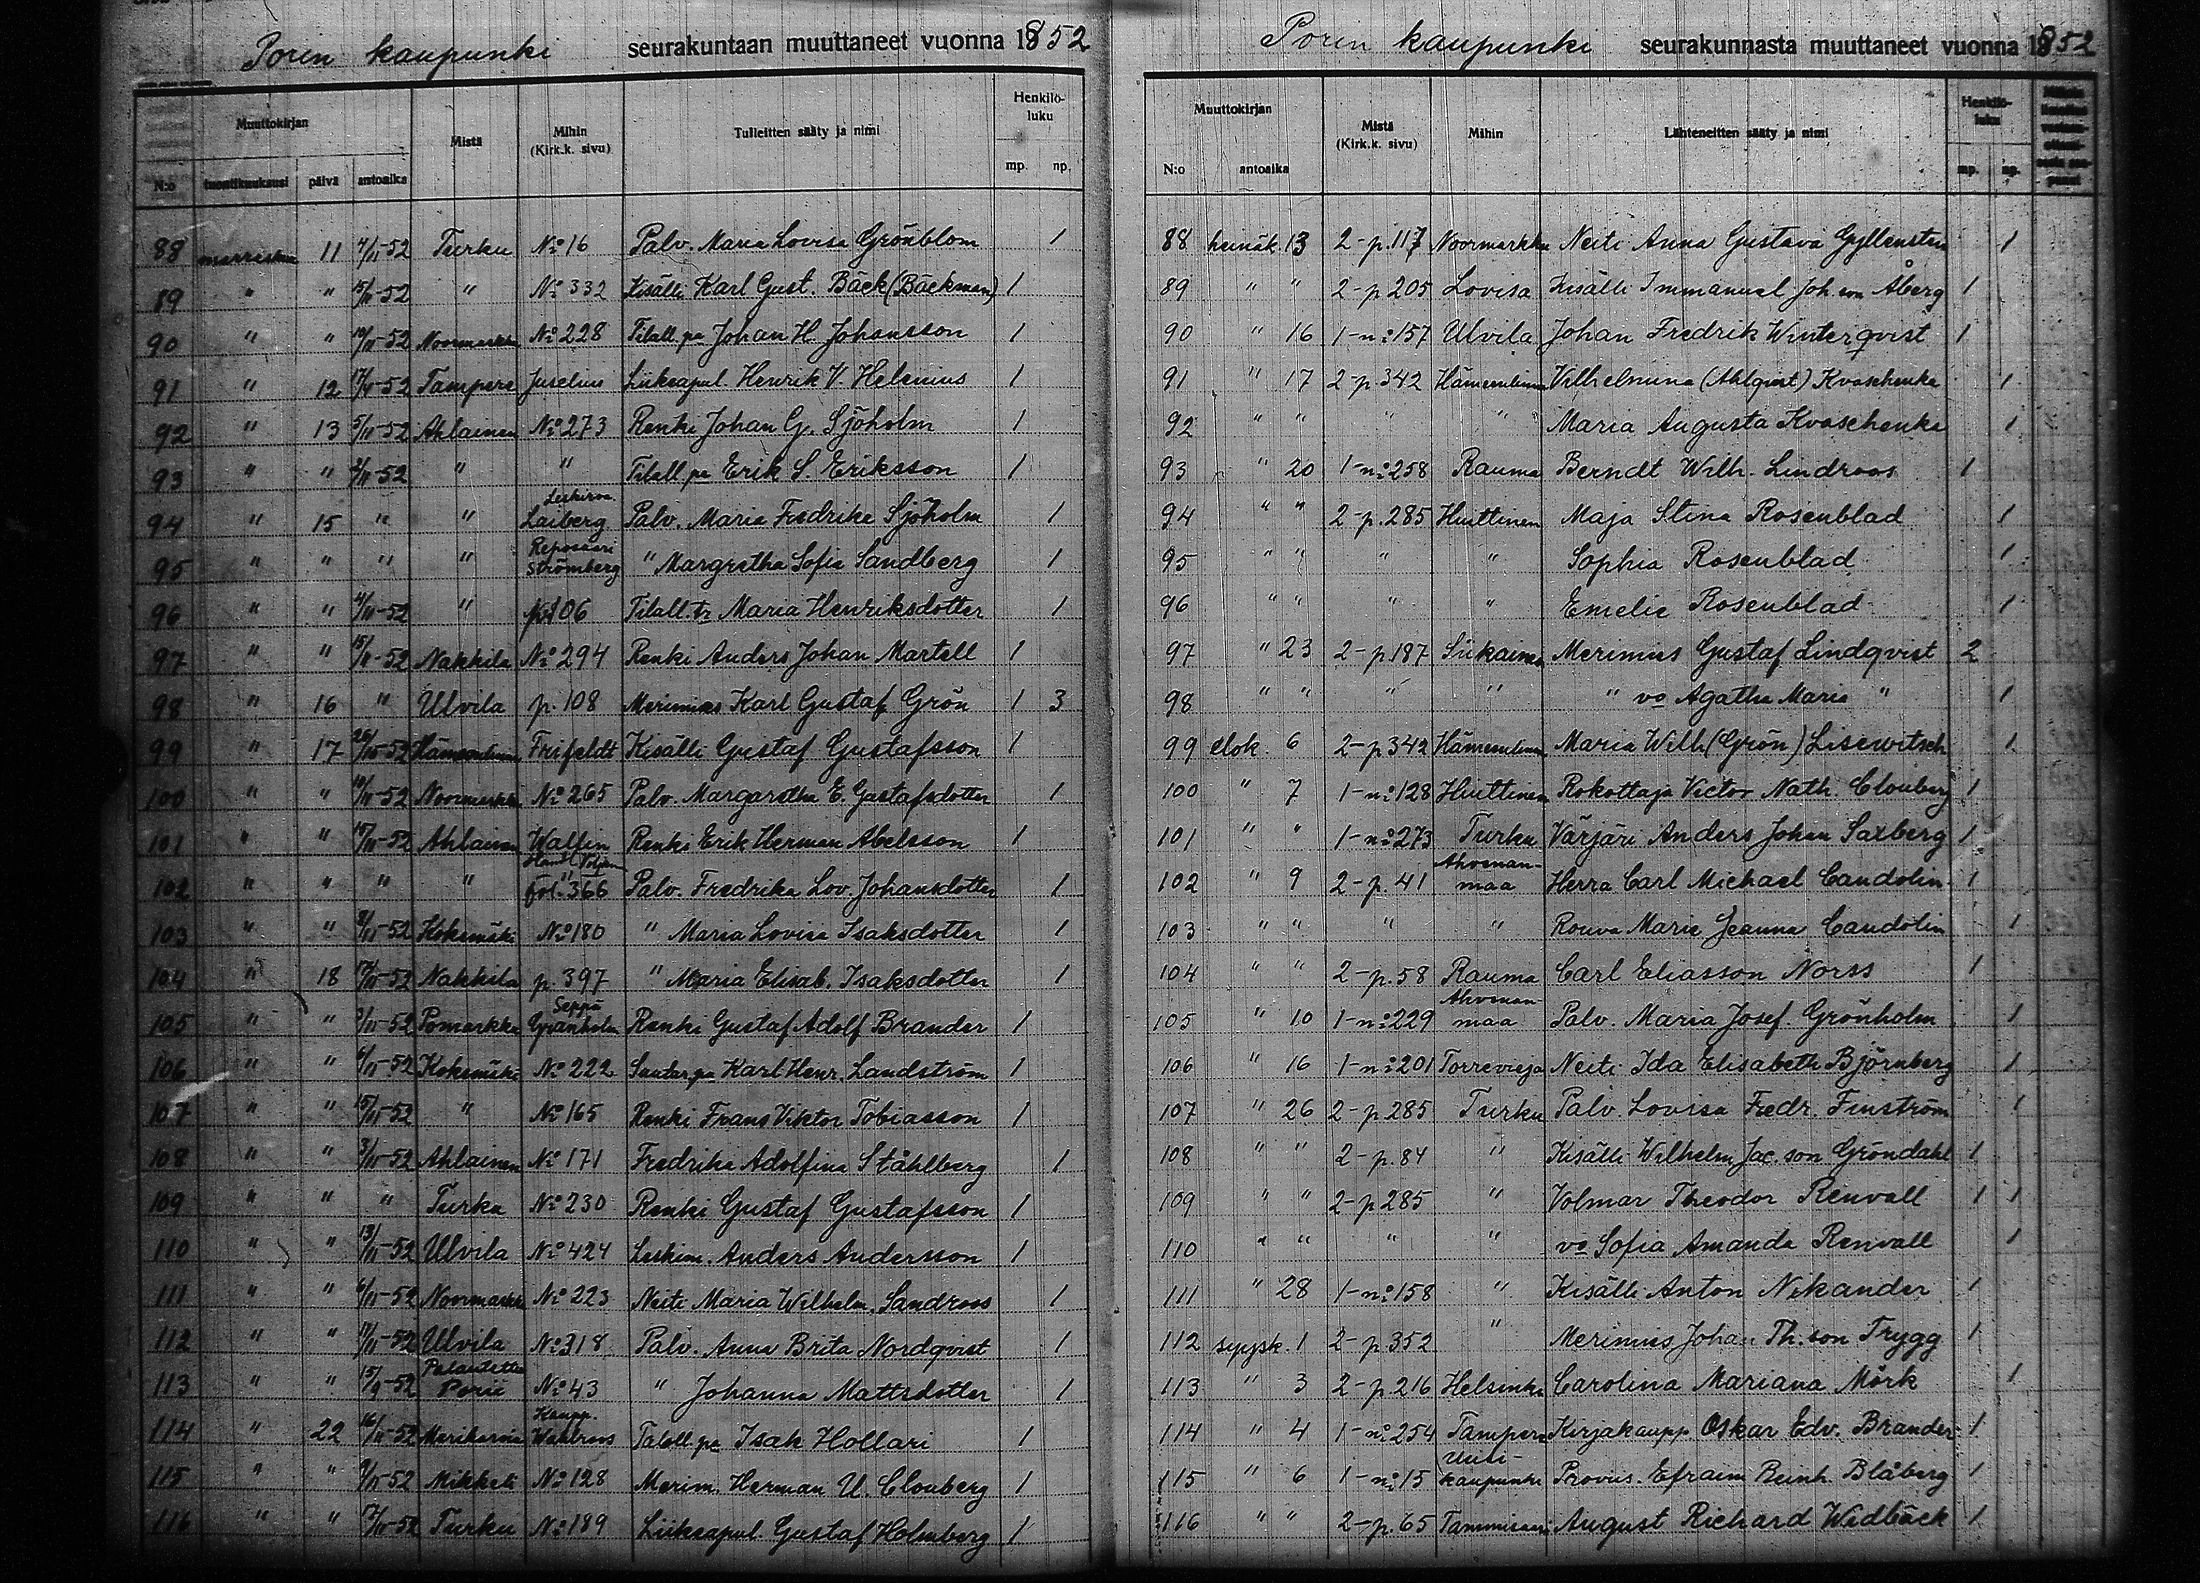 Porin kaupunki seurakuntaan muuttaneet vuonna 1852
Muuttokirjan Mistä Mihin (Kirk.k. sivu) Tulleitten sääty ja nimi Henkilö-luku
N:o tuontikuukausi päivä antoaika mp. np.
88 marraskuu 11 4/11-52 Turku No 16 Palv. Maria Lovisa Grönblom 1
89 " " 15/11-52 " No 332 Kisälli Karl Gust. Bäck (Bäckman) 1
90 " " 10/11-52 Noormarkku No 228 Tilall. pa Johan H Johansson 1
91 " 12 17/11-52 Tampere Juselius Liikeapul. Henrik V. Helenius 1
92 " 13 5/11-52 Ahlainen No 273 Renki Johan G. Sjöholm 1
93 " " 2/11-52 " " Tilall. pa Erik S. Eriksson 1
94 " 15 " " Leskirva Laiberg Palv. Maria Fredrika Sjöholm 1
95 " " " " Reposaari Strömberg " Margretha Sofia Sandberg 1
96 " " 4/11-52 " p. 106 Tilall. tr Maria Henriksdotter 1
97 " " 15/11-52 Nakkila No 294 Renki Anders Johan Martell 1
98 " 16 " Ulvila p. 108 Merimies Karl Gustaf Grön 1 3
99 " 17 Hämeenlinna Frifeldt Kisälli Gustaf Gustafsson 1
100 " " 10/11-52 Noormarkku No 265 Palv. Margaretha E. Gustafsdotter 1
101 " " 15/11-52 Ahlainen Walfin Renki Erik Herman Abelsson 1
102 " " " " fol. 366 Palv. Fredrika Lov. Johansdotter 1
103 " " 8/11-52 Kokemäki No 180 " Maria Lovisa Isaksdotter 1
104 " 18 17/11-52 Nakkila p. 397 " Maria Elisab. Isaksdotter 1
105 " " Pomarkku Seppä Granholm Renki Gustaf Adolf Brander 1
106 " " 6/11-52 Kokemäki No 222 Suutar. pa Karl Henr. Landström 1
107 " " 15/11-52 " No 165 Renki Frans Viktor Tobiasson 1
108 " " 3/11-52 Ahlainen No 171 Fredrika Adolfina Ståhlberg 1
109 " " " Turku No 230 Renki Gustaf Gustafsson 1
110 " " 13/11-52 Ulvila No 424 Leskim. Anders Andersson 1
111 " " 6/11-52 Noormarkku No 223 Neiti Maria Wilhelm. Sandroos 1
112 " " Ulvila No 318 Palv. Anna Brita Nordqvist 1
113 " " 15/9-52 Palautettu Porii No 43 " Johanna Mattsdotter 1
114 " 22 16/11-52 Merikarvia Kaupp. Wahlroos Taloll. pa Isak Hollari 1
115 " " 9/11-52 Mikkeli No 128 Merim. Herman U. Clouberg 1
116 " " 17/11-52 Turku No 189 Liikeapul. Gustaf Holmberg 1
Porin kaupunki seurakunnasta muuttaneet vuonna 1852
Muuttokirjan Mistä (Kirk.k. sivu) Mihin Lähteneitten sääty ja nimi Henkilö-luku
N:o antoaika mp. np.
88 heinäk. 13 2-p. 117 Noormarkku Neiti Anna Gustava Gyllensten 1
89 " " 2-p 205 Lovisa Kisälli Immanuel Joh. son Åberg 1
90 " 16 1-no 157 Ulvila Johan Fredrik Winterqvist 1
91 " 17 2-p. 342 Hämeenlinna Vilhelmina (Ahlqvist) Kvaschenka 1
92 " " " " Maria Augusta Kvaschenka 1
93 " 20 1-no 258 Rauma Berndt Wilh. Lindroos 1
94 " " 2-p. 285 Huittinen Maja Stina Rosenblad 1
95 " " " " Sophia Rosenblad 1
96 " " " " Emelie Rosenblad 1
97 " 23 2-p. 187 Siikainen Merimies Gustaf Lindqvist 2
98 " " " " " vo Agatha Maria " 1
99 elok. 6 2-p 342 Hämeenlinna Maria Wilh (Grön) Lisewitsch 1
100 " 7 1-no 128 Huittinen Rokottaja Victor Nath. Clouberg 1
101 " " 1-no 273 Turku Värjäri Anders Johan Saxberg 1
102 " 9 2-p. 41 Ahvenan-maa Herra Carl Michael Candolin 1
103 " " " " Rouva Marie Jeanna Candolin 1
104 " " 2-p. 58 Rauma Carl Eliasson Norss 1
105 " 10 1-no 229 Ahvenan-maa Palv. Maria Josef. Grönholm 1
106 " 16 1-no 201 Torrevieja Neiti Ida Elisabeth Björnberg 1
107 " 26 2-p 285 Turku Palv. Lovisa Fredr. Finström 1
108 " " 2-p. 84 " Kisälli Wilhelm Jac. son Gröndahl 1
109 " " 2-p 285 " Volmar Theodor Renvall 1 1
110 " " " " vo Sofia Amanda Renvall 1
111 " 28 1-no 158 " Kisälli Anton Nikander 1
112 syysk. 1 2-p. 352 " Merimies Johan Th. son Trygg 1
113 " 3 2-p. 216 Helsinki Carolina Mariana Mörk 1
114 " 4 1-no 254 Tampere Kirjakaupp. Oskar Edv. Brander 1
115 " 6 1-no 15 Uusi-kaupunki Proviis. Efraim Reinh. Blåberg 1
116 " " 2-p. 65 Tammisaari August Richard Widbäck 1